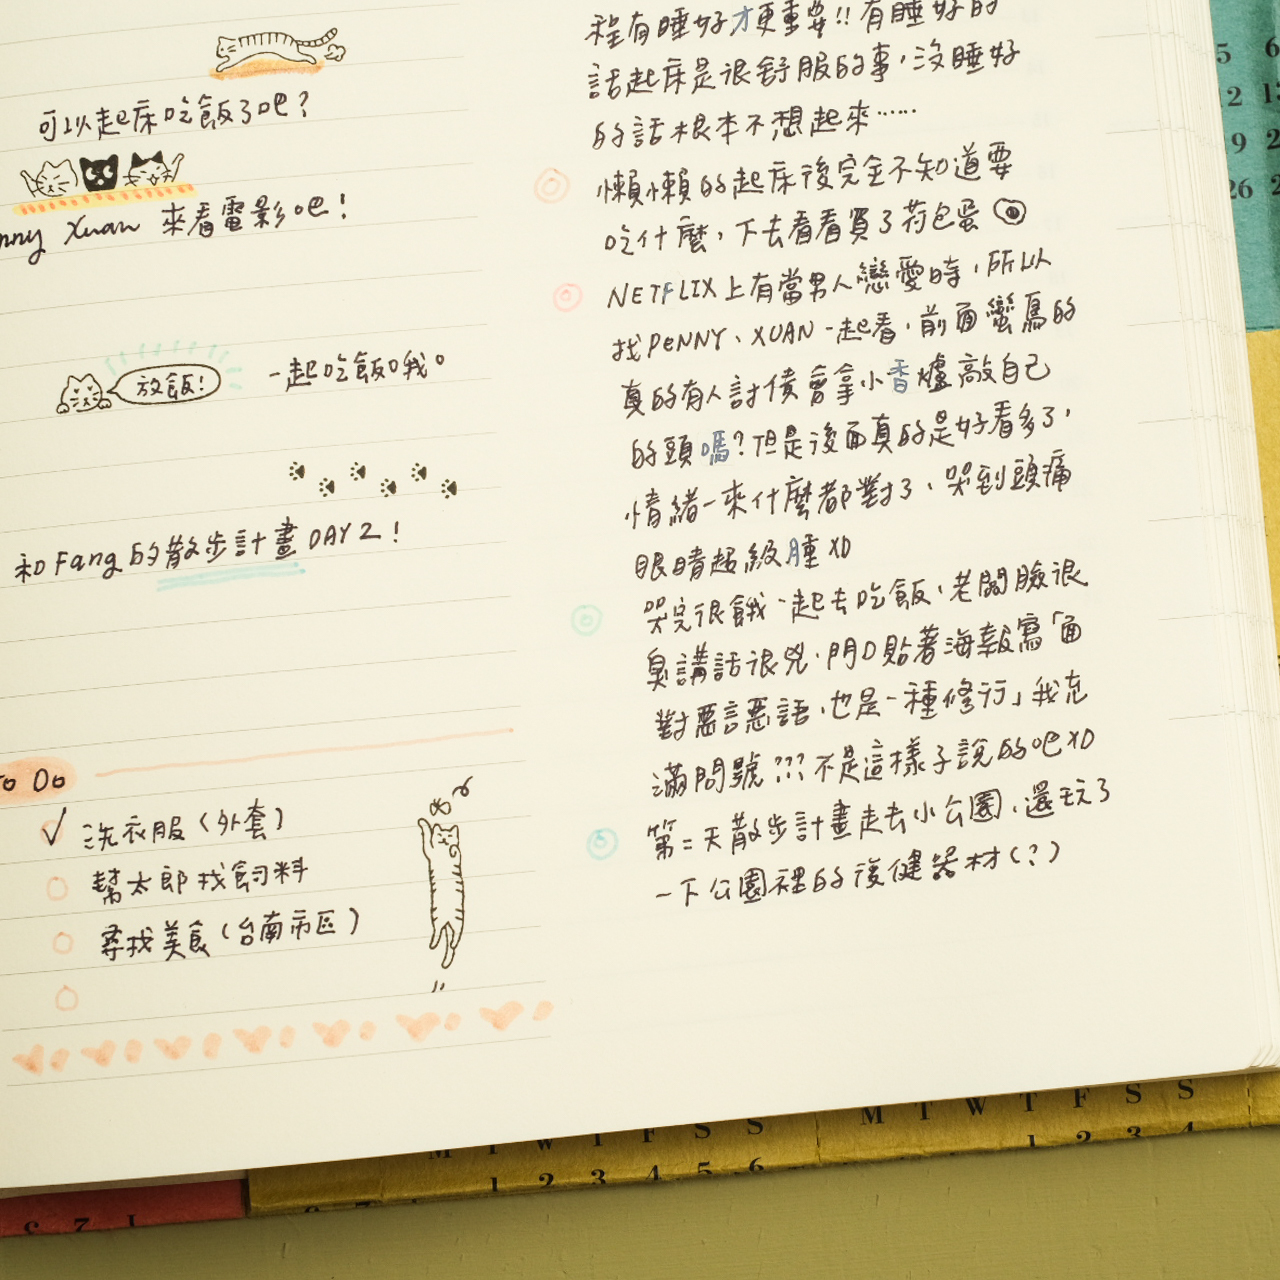 可以起床吃飯了吧？
nny Xuan 來看電影吧！
放飯！
一起吃飯哦。
和Fang的散步計畫DAY2！
To Do
洗衣服（外套）
幫太郎找飼料
尋找美食（台南市區）
程有睡好才更重要!!有睡好的
話起床是很舒服的事，沒睡好
的話根本不想起來……
懶懶的起床後完全不知道要
吃什麼，下去看看買了荷包蛋
NETFLIX上有當男人戀愛時，所以
找PENNY、XUAN一起看，前面蠻鳥的
真的有人討債會拿小香爐敲自己
的頭嗎？但是後面真的是好看多了，
情緒一來什麼都對了、哭到頭痛
眼睛超級腫XD
哭完很餓一起去吃飯，老闆臉很
臭講話很兇，門口貼著海報寫「面
對惡言惡語，也是一種修行」我充
滿問號???不是這樣子說的吧XD
第二天散步計畫走去小公園，還玩了
一下公園裡的復健器材（？）
5 6
12 13
19 2
26 2
M T W T F S S
M T W T F S S
1 2 3 4
1 2 3 4 5 6